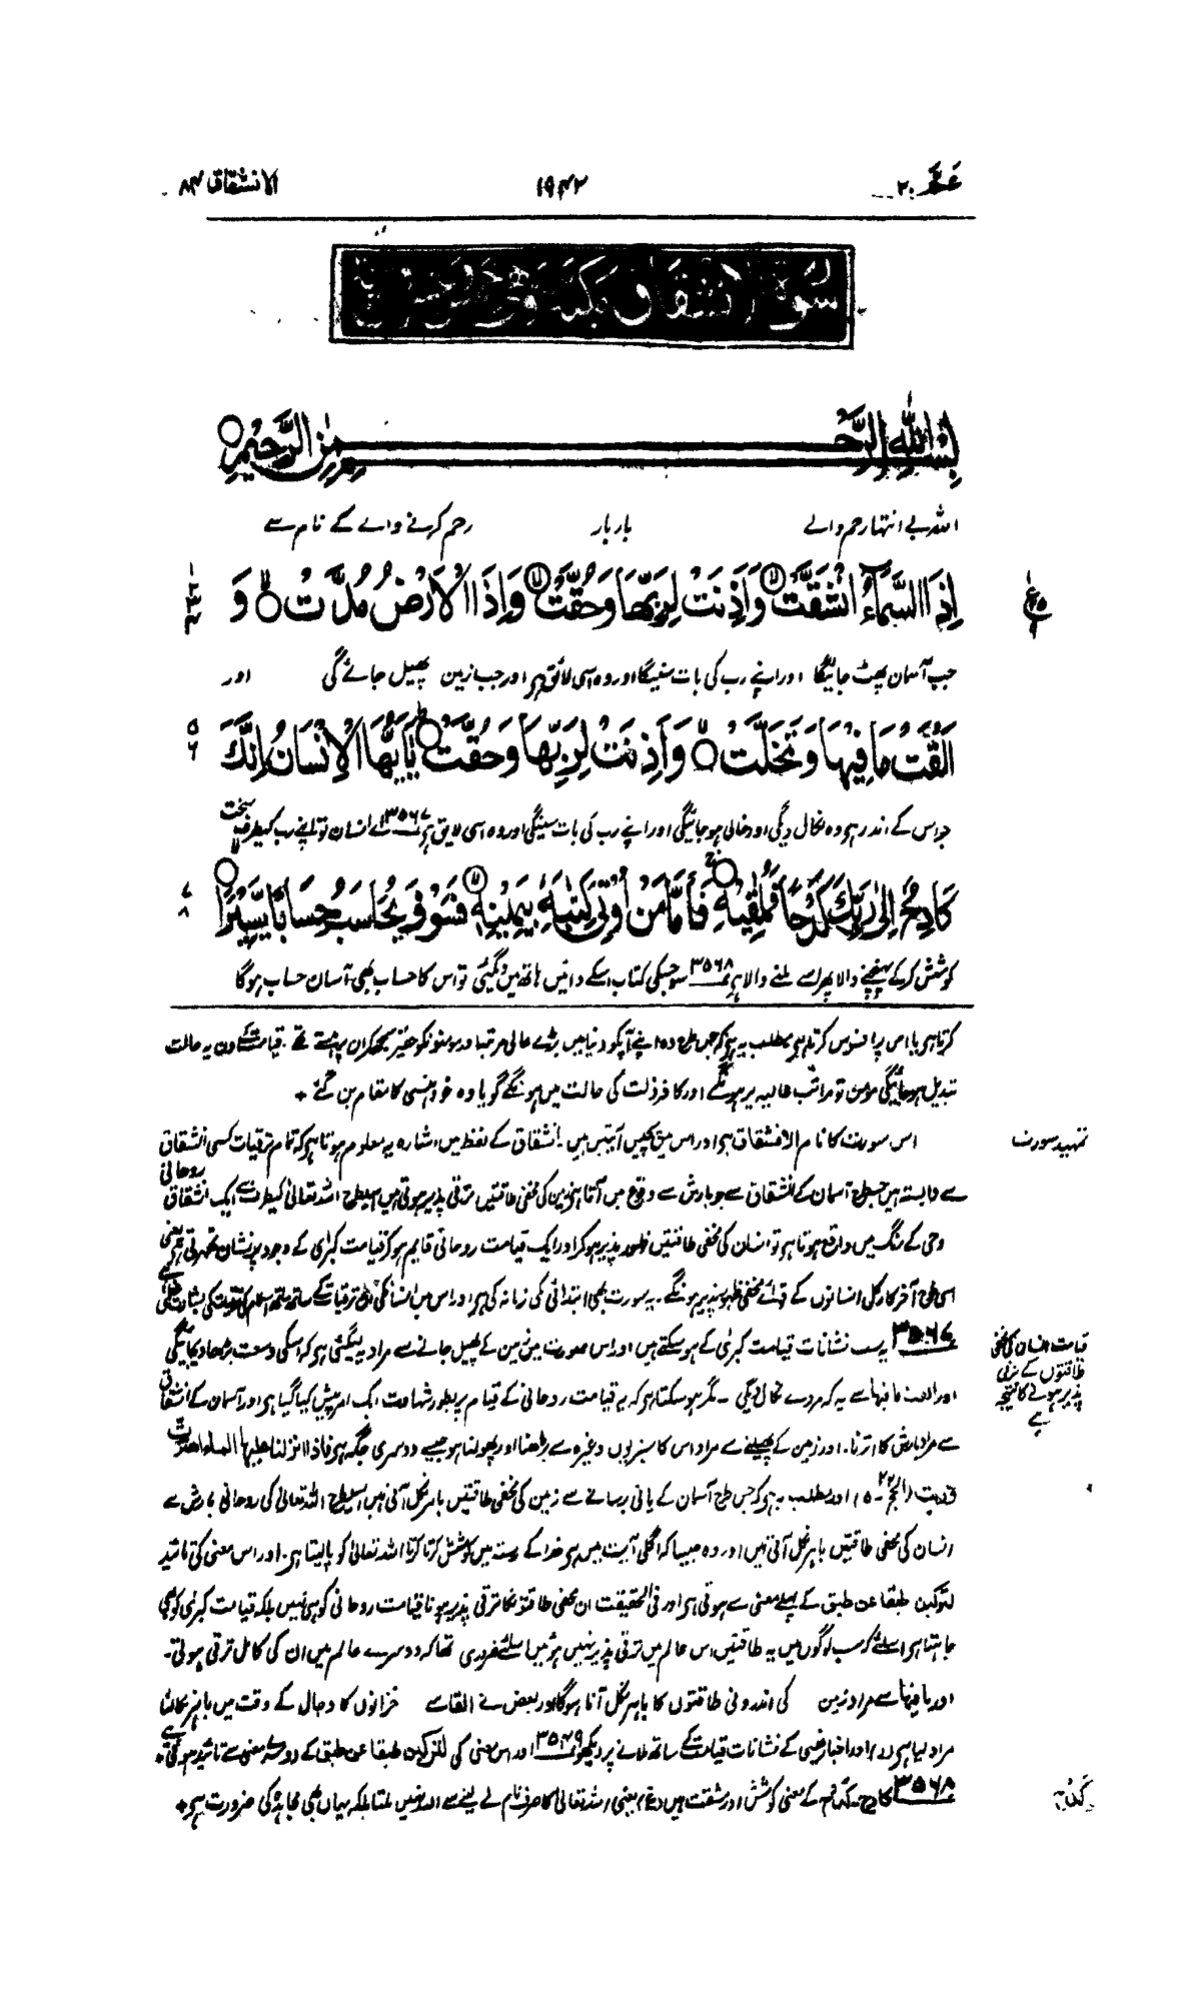 عمّ ۳۰ ۱۹۴۲ الانشقاق ۸۴
سورة الانشقاق مكية وهي
بِسْمِ اللّٰهِ الرَّحْمٰنِ الرَّحِيْمِ
اللہ بے انتہا رحم والے بار بار رحم کرنے والے کے نام سے
اِذَا السَّمَآءُ انْشَقَّتْ ۙ وَاَذِنَتْ لِرَبِّهَا وَحُقَّتْ ۙ وَاِذَا الْاَرْضُ مُدَّتْ ۙ وَ
جب آسمان پھٹ جائیگا اور اپنے رب کی بات سنیگا اور وہ اسی لائق ہے اور جب زمین پھیل جائے گی اور
اَلْقَتْ مَا فِيْهَا وَتَخَلَّتْ ۙ وَاَذِنَتْ لِرَبِّهَا وَحُقَّتْ ۭ يٰٓاَيُّهَا الْاِنْسَانُ اِنَّكَ ۵ ۶
جو اس کے اندر ہے وہ نکال دیگی اور خالی ہو جائیگی اور اپنے رب کی بات سنیگی اور وہ اسی لایق ہے ۳۵۶۷ اے انسان تو اپنے رب کیطرف سخت
كَادِحٌ اِلٰى رَبِّكَ كَدْحًا فَمُلٰقِيْهِ ۚ فَاَمَّا مَنْ اُوْتِيَ كِتٰبَهٗ بِيَمِيْنِهٖ ۙ فَسَوْفَ يُحَاسَبُ حِسَابًا يَّسِيْرًا ۙ ۷ ۸
کوشش کرکے پہنچنے والا پھر اسے ملنے والا ہے ۳۵۶۸ سو جسکی کتاب اسکے دائیں ہاتھ میں دیگئی تو اس کا حساب بھی آسان حساب ہوگا
کرتا ہے یا اس پر افسوس کرتا ہے مطلب یہ ہے کہ جس طرح وہ اپنے آپکو دنیا میں بڑے عالی مرتبہ اور مومنونکو حقیر سمجھکر ان پر ہنستے تھے۔ قیامت کے دن یہ حالت
تبدیل ہو جائیگی مومن تو مراتب عالیہ پر ہونگے اور کافر ذلت کی حالت میں ہونگے گویا وہ خود ہنسی کا مقام بن گئے ٭
تمہید سورت
اس سورت کا نام الانشقاق ہے اور اس میں پچیس آیتیں ہیں۔ انشقاق کے لفظ میں اشارہ یہ معلوم ہوتا ہے کہ تمام ترقیات کسی انشقاق
سے وابستہ ہیں جسطرح آسمان کے انشقاق سے جو بارش سے وقوع میں آتا ہے زمین کی مخفی طاقتیں ترقی پذیر ہوتی ہیں اسیطرح اللہ تعالیٰ کیطرف سے ایک انشقاق روحانی
وحی کے رنگ میں واقع ہوتا ہے تو انسان کی مخفی طاقتیں ظہور پذیر ہوکر اور ایک قیامت روحانی قایم ہوکر قیامت کبرٰی کے وجود پر نشان ٹھہرتی ہے یعنی
اسی طرح آخر کار کل انسانوں کے قوائے مخفی ظہور پذیر ہونگے۔ یہ سورت بھی ابتدائی مکی زمانہ کی ہے اور اس میں انسان کی ترقیات کے ساتھ ساتھ اسلام کی
۳۵۶۷ یہ سب نشانات قیامت کبرٰی کے ہو سکتے ہیں اور اس صورت میں زمین کے پھیل جانے سے مراد یہ لیگئی ہے کہ اسکی وسعت بڑھا دیجائیگی
قیامت انسان کی مخفی طاقتوں کے ترقی پذیر ہونے کا نتیجہ ہے
اور القت ما فیہا سے یہ کہ مردے نکال دیگی۔ مگر ہو سکتا ہے کہ یہ قیامت روحانی کے قیام پر بطور شہادت ایک امر پیش کیا گیا ہے اور آسمان کے انشقاق
سے مراد بارش کا اترنا۔ اور زمین کے پھیلنے سے مراد اس کا سبزیوں وغیرہ سے بڑھنا اور پھولنا ہو جیسے دوسری جگہ ہے فاذا انزلنا علیہا الماء اھتزت
وربت (الحج ۲۲-۵) اور مطلب یہ ہے کہ جس طرح آسمان کے پانی برسانے سے زمین کی مخفی طاقتیں باہر نکل آتی ہیں اسیطرح اللہ تعالیٰ کی روحانی بارش سے
انسان کی مخفی طاقتیں باہر نکل آتی ہیں اور وہ جیسا کہ اگلی آیت میں ہے خدا کے رستہ میں کوشش کرتا کرتا اللہ تعالیٰ کو پالیتا ہے۔ اور اس معنی کی تائید
لترکبن طبقا عن طبق کے پہلے معنی سے ہوتی ہے اور فی الحقیقت ان مخفی طاقتونکا ترقی پذیر ہونا قیامت روحانی کو ہی نہیں بلکہ قیامت کبرٰی کو بھی
چاہتا ہے اسلئے کہ سب لوگوں میں یہ طاقتیں اس عالم میں ترقی پذیر نہیں ہوئیں اسلئے ضروری تھا کہ دوسرے عالم میں ان کی کامل ترقی ہوتی۔
اور ما فیہا سے مراد زمین کی اندرونی طاقتوں کا باہر نکل آنا ہوگا اور بعض نے القا سے خزانوں کا دجال کے وقت میں باہر نکالنا
مراد لیا ہے (ر) اور اخبار غیبی کے نشانات قیامت کے ساتھ ملانے پر دیکھو ۳۵۴۹ اور اس معنی کی لترکبن طبقا عن طبق کے دوسرے معنی سے تائید ہوتی ہے ٭
۳۵۶۸ کادح۔ کدح کے معنی کوشش اور مشقت ہیں (غ) یعنی اللہ تعالیٰ کا صرف نام لے لینے سے اللہ نہیں ملتا بلکہ یہاں بھی مجاہدہ کی ضرورت ہے ٭
کدح